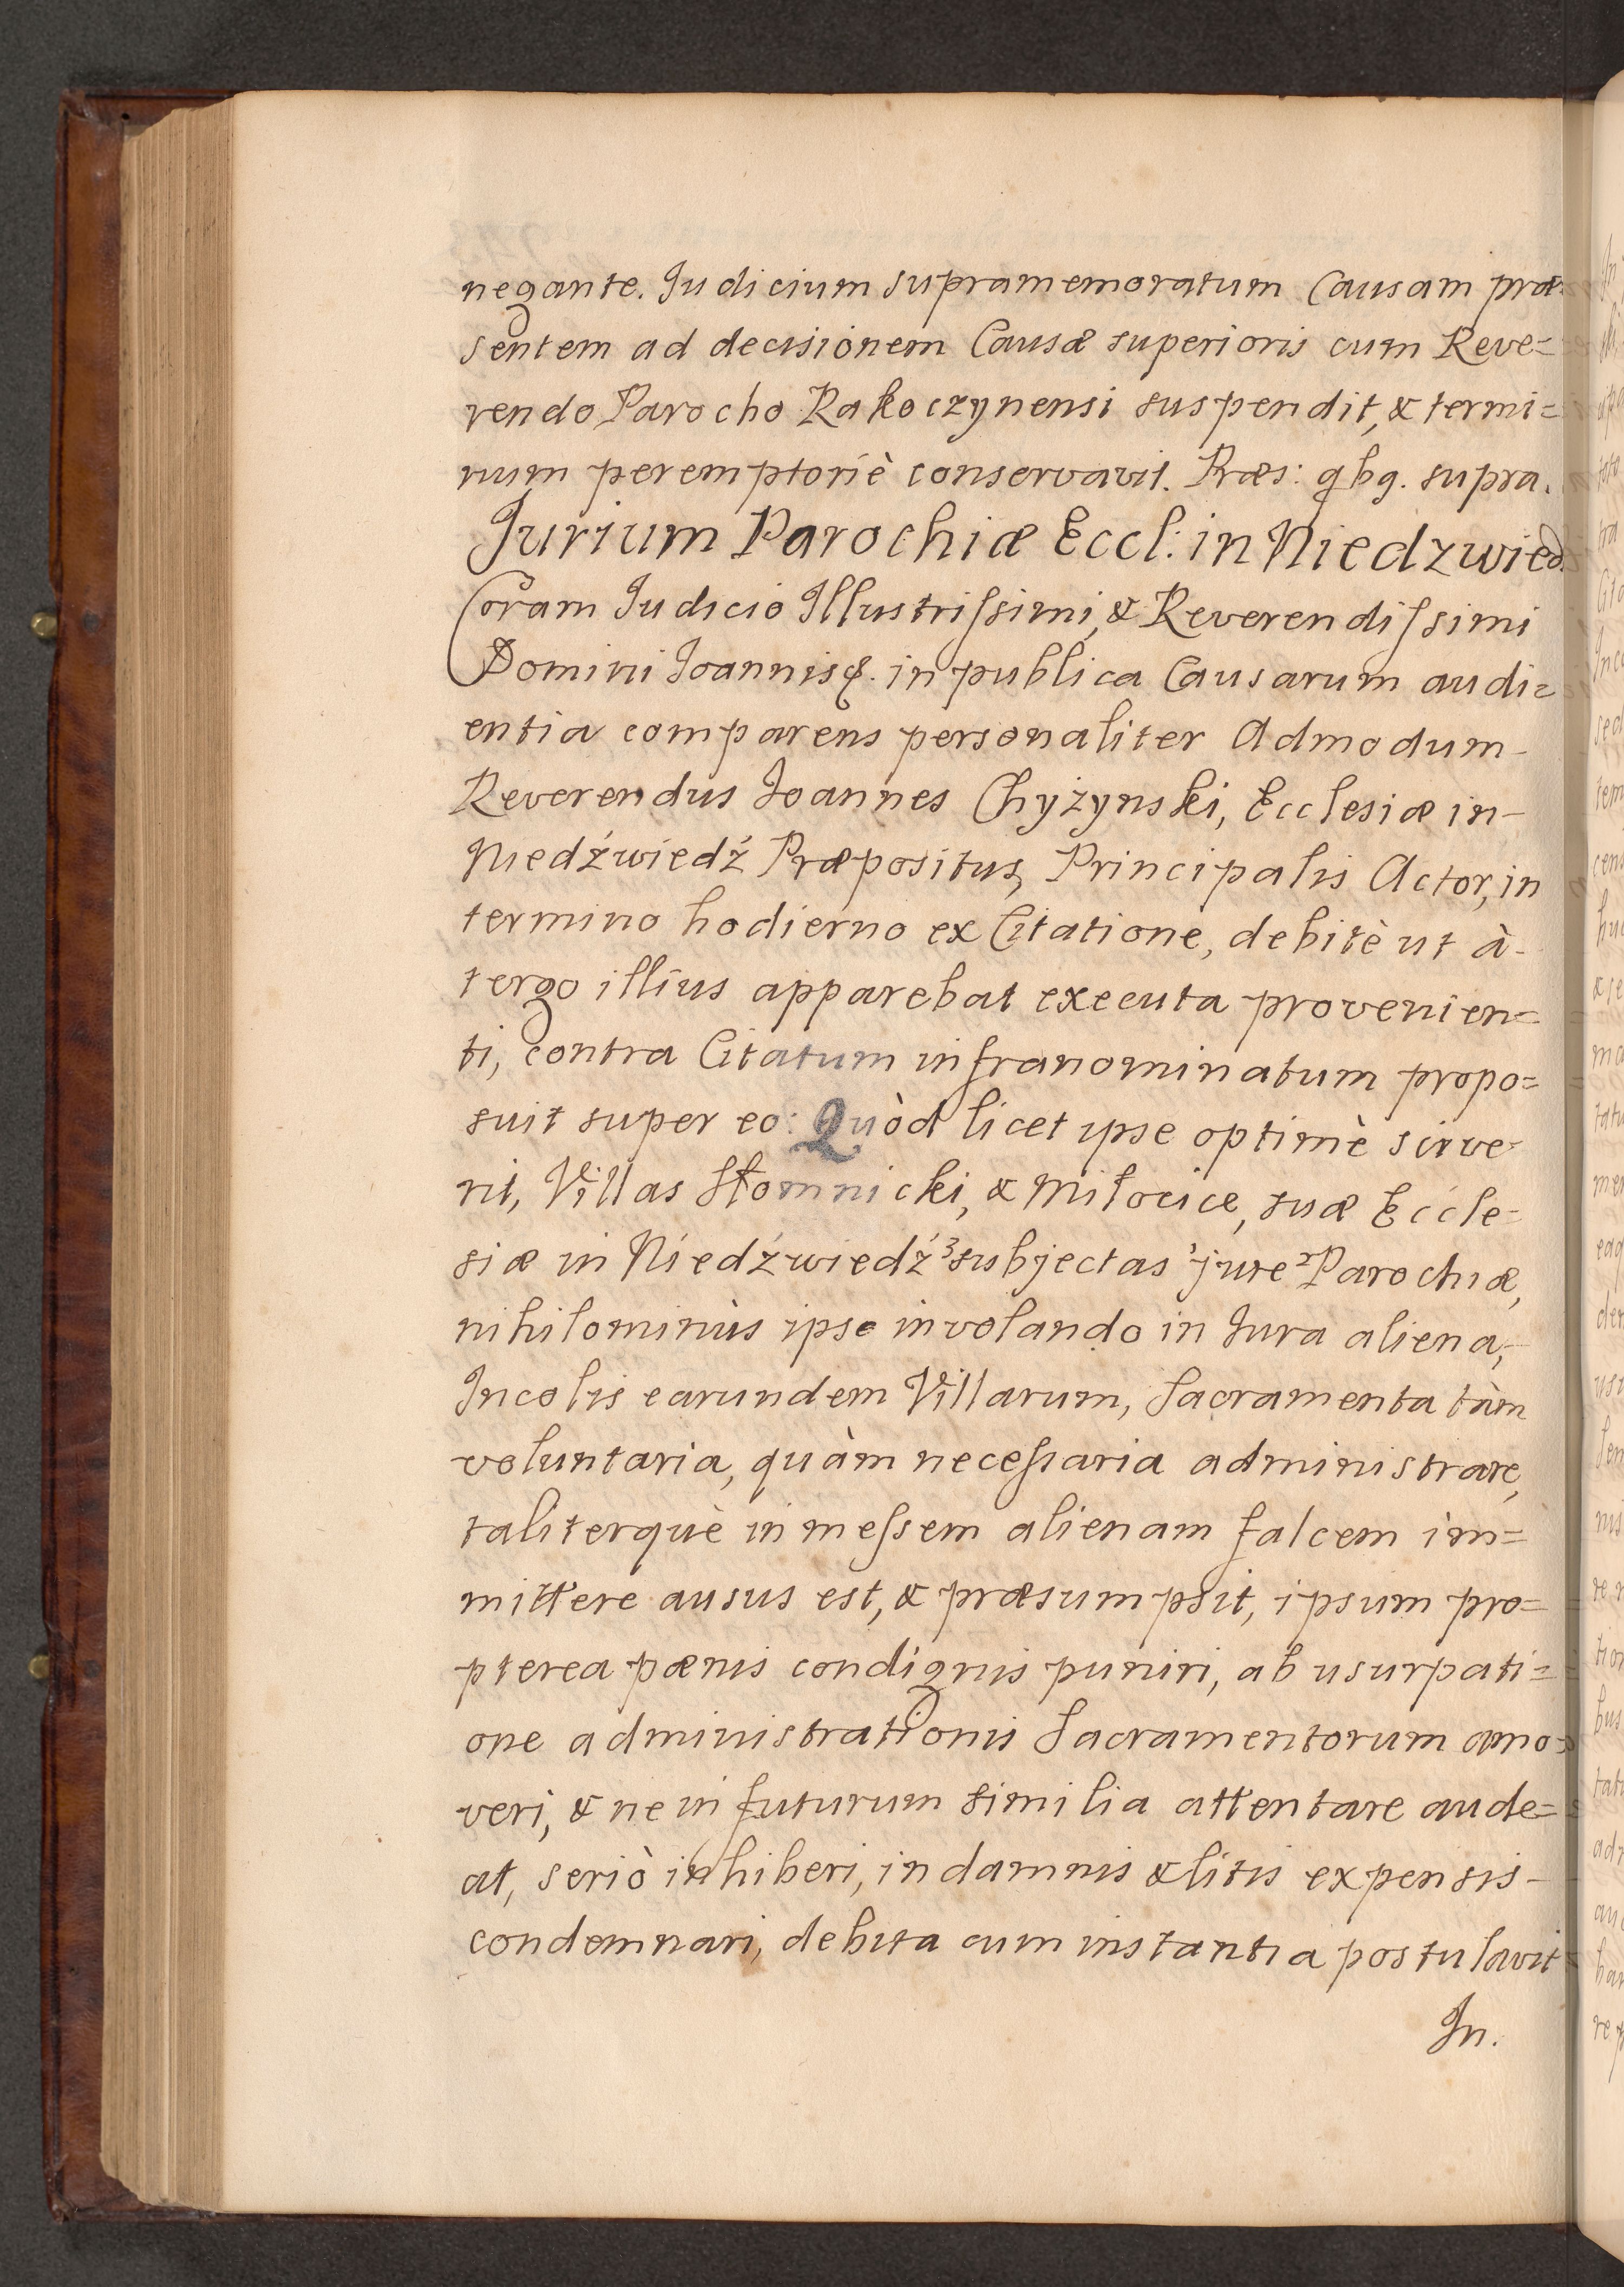 negante. Judicium supramemoratum Causam præ=
sentem ad decisionem Causæ superioris cum Reve=
rendo Parocho Rakoczynensi suspendit, & termi=
num peremptoriè conservavit. Præs: qbg. supra.
Jurium Parochiæ Eccl: in Niedzwied
Coram Judicio Illustriſsimi, & Reverendiſsimi
Domini Joannis &. in publica Causarum audi=
entia comparens personaliter Admodum
Reverendus Joannes Chyżynski, Ecclesiæ in
Niedźwiedź Præpositus, Principalis Actor, in
termino hodierno ex Citatione, debitè ut à
tergo illius apparebat executa provenien=
ti, contra Citatum infranominatum propo=
suit super eo: Quòd licet ipse optimè scive
rit, Villas Słomnicki, & Miłocice, suæ Eccle=
siæ in Niedźwiedź ³subjectas ¹jure ²Parochiæ,
nihilominùs ipse involando in Jura aliena,
Incolis earundem Villarum, Sacramenta tàm
voluntaria, quàm neceſsaria administrare,
taliterquè in meſsem alienam falcem im=
mittere ausus est, & præsumpsit, ipsum pro=
pterea pænis condignis puniri, ab usurpati=
one administrationis Sacramentorum amo=
veri, & ne in futurum similia attentare aude=
at, seriò inhiberi, in damnis & litis expensis
condemnari, debita cum instantia postulavit
In.